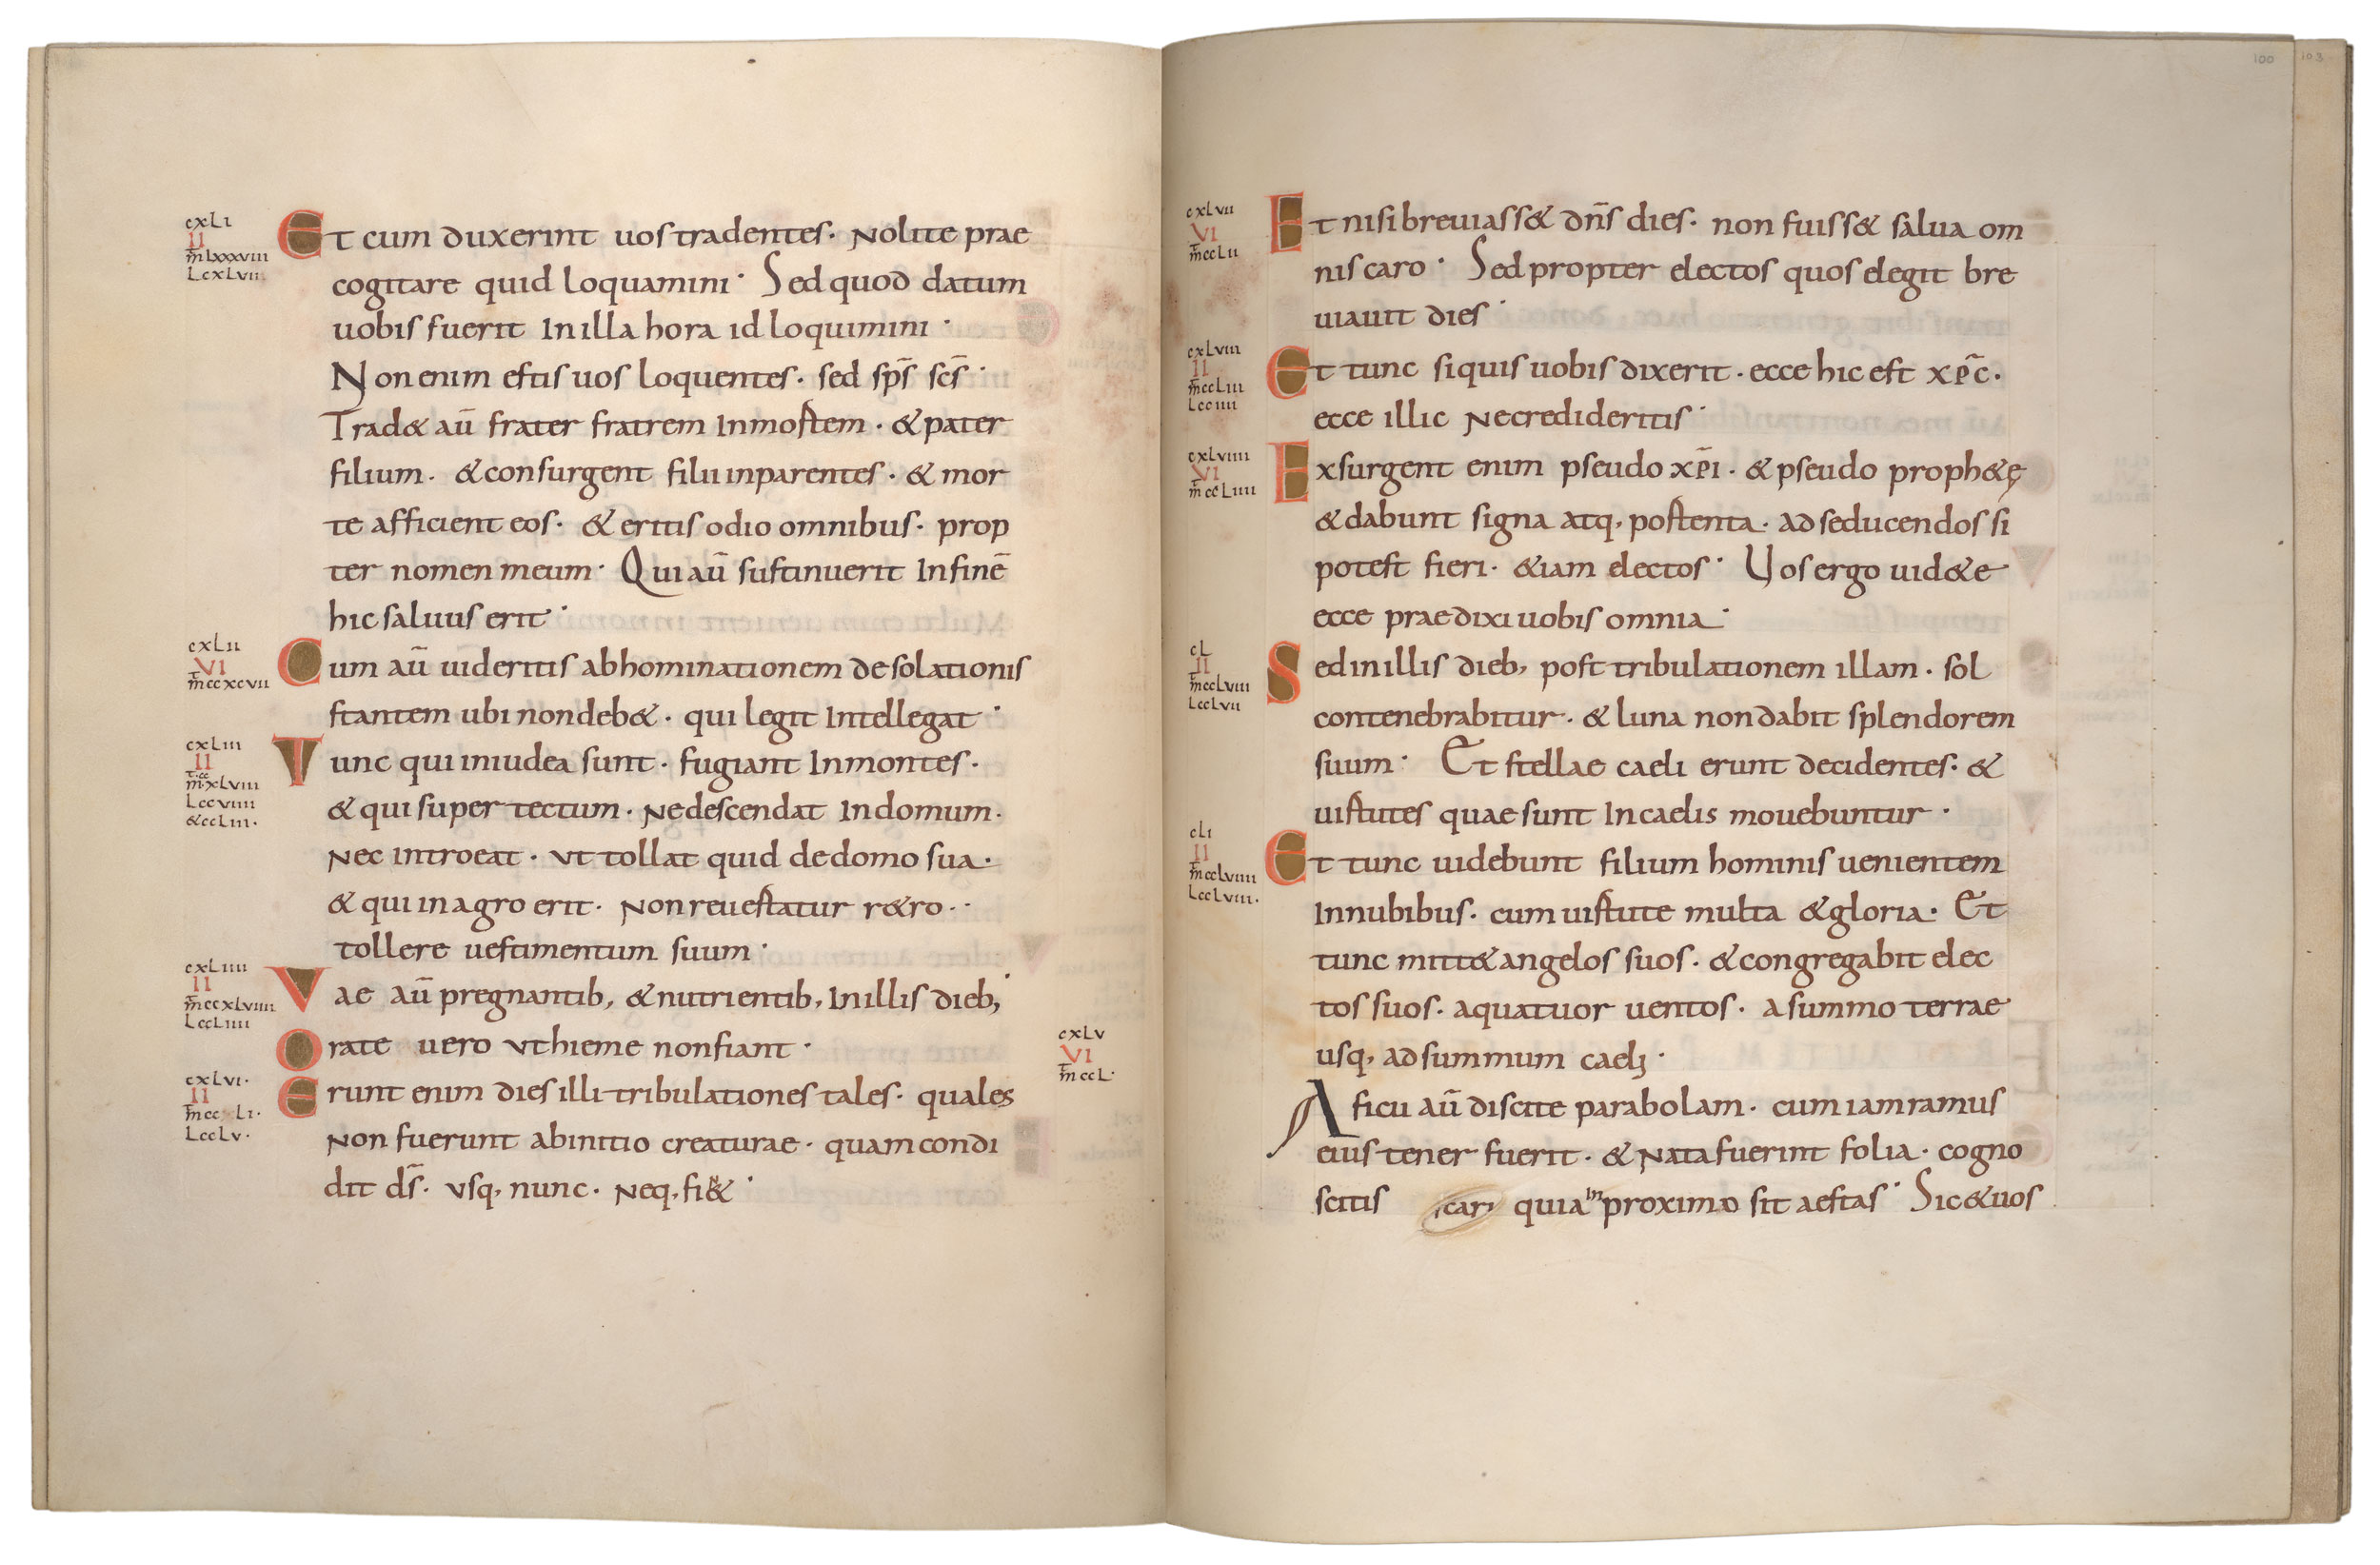 cxlı
II
m̄ lxxxvııı
L cxlvıı
Et cum duxerint uos tradentes· Nolite prae
cogitare quid loquamini· Sed quod datum
uobis fuerit In illa hora id loquimini·
Non enim estis uos loquentes· sed sp̄s sc̄s·
Trad& aū frater fratrem In mortem· & pater
filium· & consurgent filii in parentes· & mor
te afficient eos· & eritis odio omnibus· prop
ter nomen meum· Qui aū sustinuerit In finē
hic saluus erit·
cxlıı
VI
m̄ ccxcvıı
Cum aū uideritis abhominationem desolationis
stantem ubi non deb&· qui legit Intellegat·
cxlııı
II
m·xlvııı
L ccvıııı
& cclııı·
Tunc qui in iudea sunt· fugiant In montes·
& qui super tectum· Ne descendat In domum·
Nec Introeat· ut tollat quid de domo sua·
& qui in agro erit· Non reuertatur r&ro·
tollere uestimentum suum·
cxlıııı
II
m̄ ccxlvıııı
L cclıııı
Vae aū pregnantib; & nutrientib; In illis dieb;
Orate uero ut hieme non fiant·
cxlv
VI
m̄ ccl·
cxlvı·
II
L cclv·
Erunt enim dies illi tribulationes tales· quales
Non fuerunt ab initio creaturae· quam condi
dit ds̄· usq; nunc· Neq; fi&·
100
103
cxlvıı
VI
m̄ cclıı
Et nisi breuiass& dn̄s dies· non fuiss& salua om
nis caro· Sed propter electos quos elegit bre
uiauit dies·
cxlvııı
II
m̄ cclııı
L ccıııı
Et tunc si quis uobis dixerit· ecce hic est xp̄c·
ecce illic Ne credideritis·
cxlvıııı
VI
m̄ cclıııı
Exsurgent enim pseudo xp̄i· & pseudo proph&ę
& dabunt signa atq; portenta· ad seducendos si
potest fieri· &iam electos· Uos ergo uid&e
ecce praedixi uobis omnia·
cl
II
m̄ cclvııı
L cclvıı
Sed in illis dieb; post tribulationem illam· sol
contenebrabitur· & luna non dabit splendorem
suum· Et stellae caeli erunt decidentes· &
uirtutes quae sunt In caelis mouebuntur·
clı
II
m̄ cclvıııı
L cclvııı·
Et tunc uidebunt filium hominis uenientem
In nubibus· cum uirtute multa & gloria· Et
tunc mitt& angelos suos· & congregabit elec
tos suos· a quatuor uentos· a summo terrae
usq; ad summum caeli·
A ficu aū discite parabolam· cum iam ramus
eius tener fuerit· & Nata fuerint folia· cogno
scitis quia in proximo sit aestas· Sic & uos